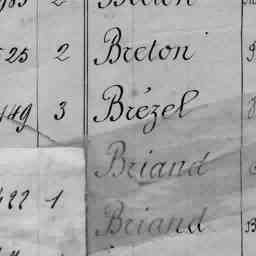 25 2 Breton
149 3 Brézel
Briand
422 1 Briand